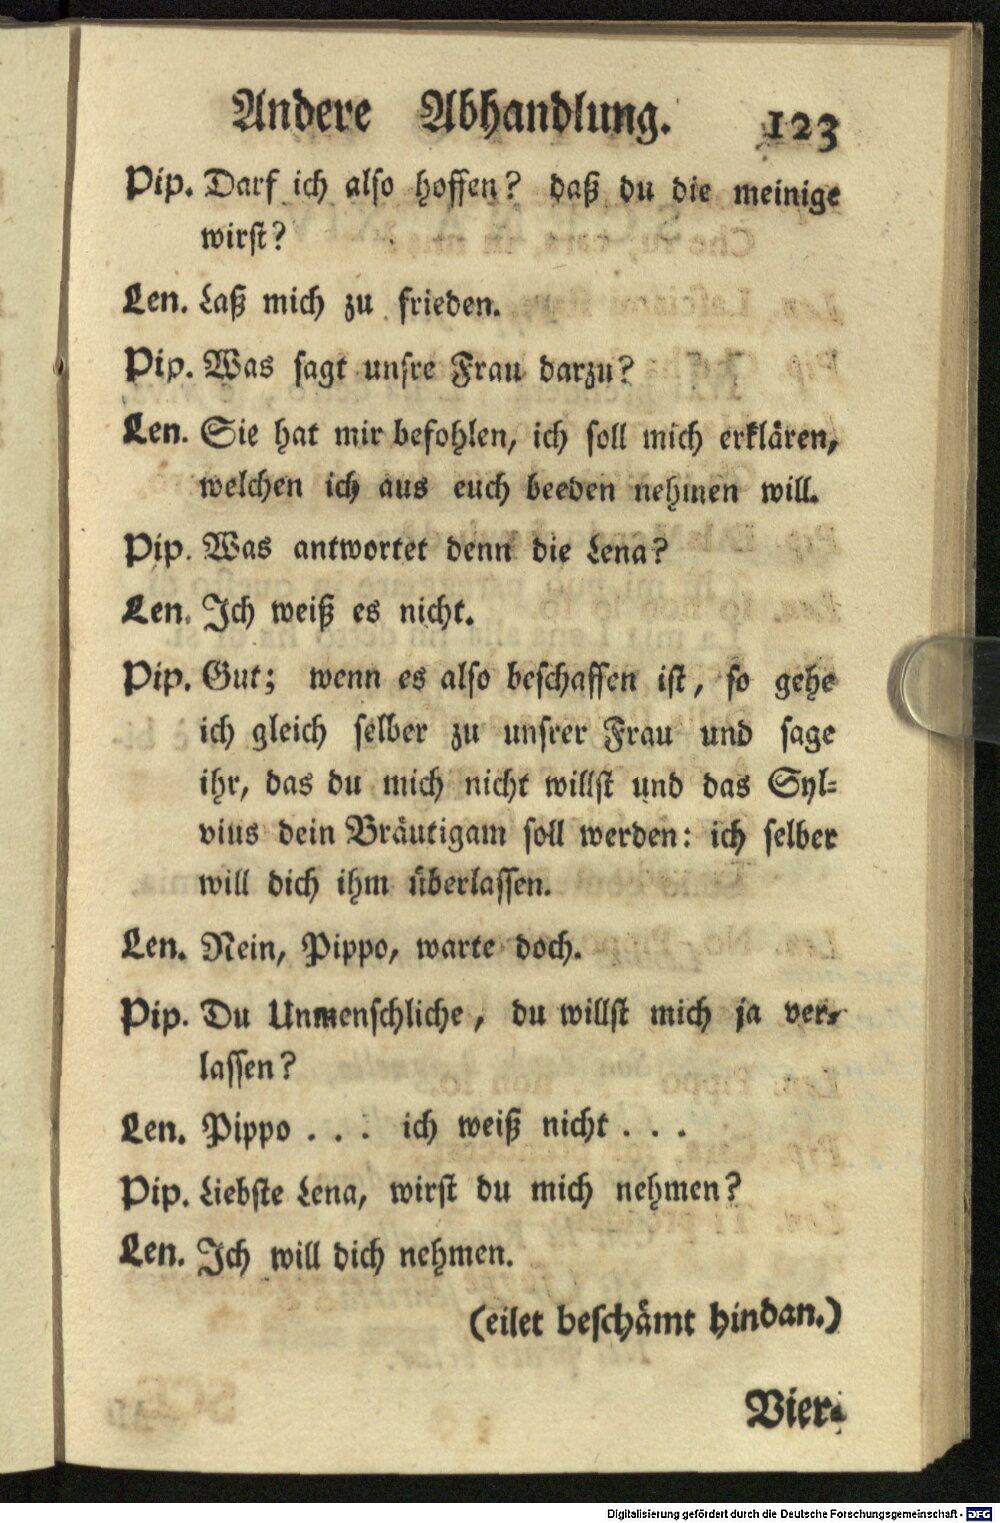 Andere Abhandlung. 123
Pip. Darf ich also hoffen? daß du die meinige
wirst?
Len. Laß mich zu frieden.
Pip. Was sagt unsre Frau darzu?
Len. Sie hat mir befohlen, ich soll mich erklären,
welchen ich aus euch beeden nehmen will.
Pip. Was antwortet denn die Lena?
Len. Ich weiß es nicht.
Pip. Gut; wenn es also beschaffen ist, so gehe
ich gleich selber zu unsrer Frau und sage
ihr, das du mich nicht willst und das Syl-
vius dein Bräutigam soll werden: ich selber
will dich ihm überlassen.
Len. Nein, Pippo, warte doch.
Pip. Du Unmenschliche, du willst mich ja ver-
lassen?
Len. Pippo . . . ich weiß nicht . . .
Pip. Liebste Lena, wirst du mich nehmen?
Len. Ich will dich nehmen.
(eilet beschämt hindan.)
Vier-
Digitalisierung gefördert durch die Deutsche Forschungsgemeinschaft - DFG